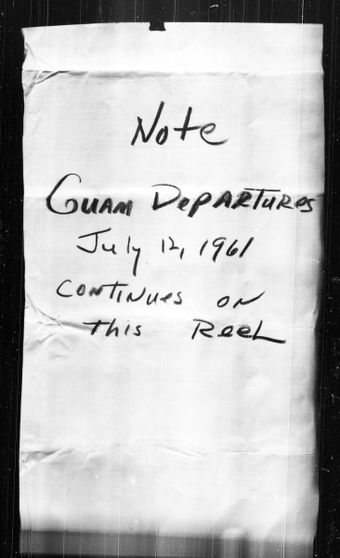 Note
Guam Departures
July 12, 1961
Continues on
this Reel